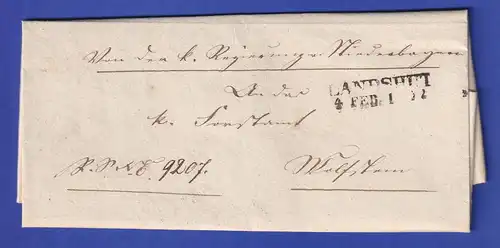 Von der k. Regierung v. Niederbayern
An das
LANDSHUT
4 FEB. 1
k. Forstamt
R. S. No. E. 9207.
Wolfstein